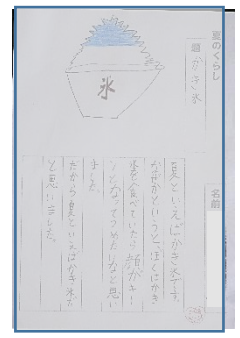 夏のくらし
題 かき氷
名前
氷
夏といえばかき氷です。
なぜかというと、ぼくはかき
氷を食べていたら頭がキーン
となってつめたいなと思い
ました。
だから夏といえばかき氷だ
と思いました。